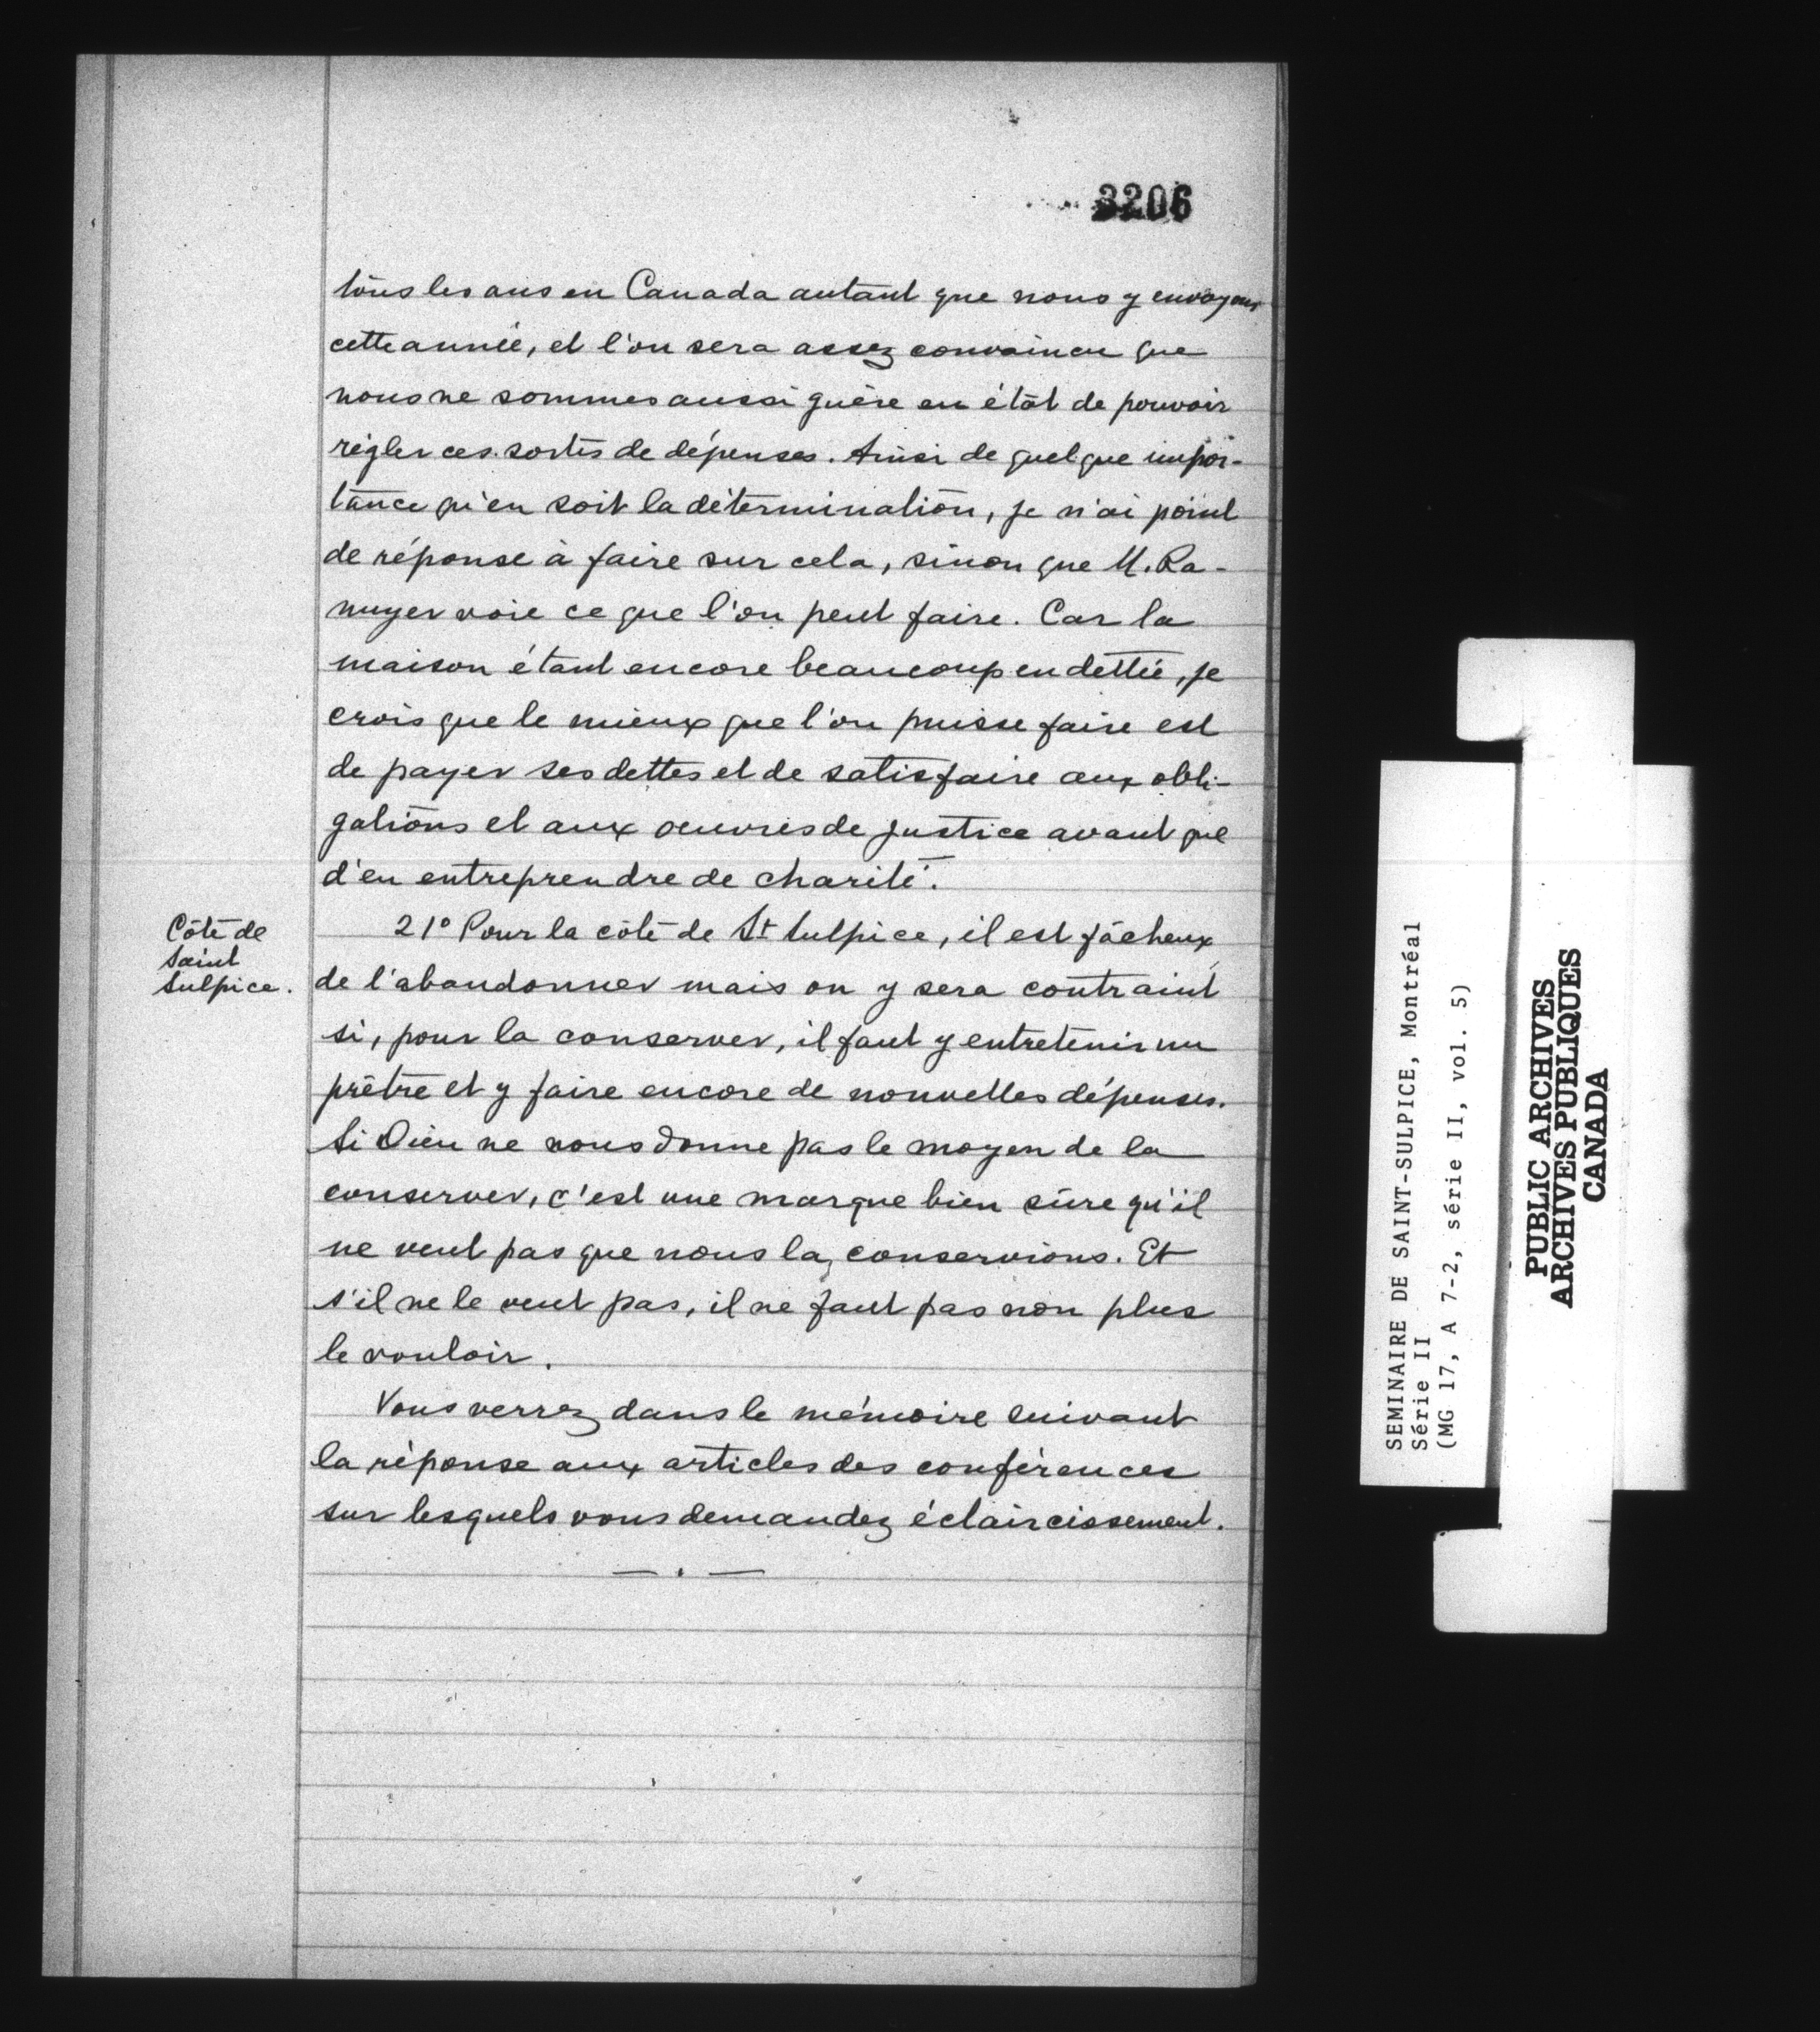 3206
tous les ans en Canada autant que nous y envoyons
cette année, et l'on sera assez convaincu que
nous ne sommes aussi guère en état de pouvoir
régler ces sortes de dépenses. Ainsi de quelque impor-
tance qu'en soit la détermination, je n'ai point
de réponse à faire sur cela, sinon que M. Ra-
nuyer voie ce que l'on peut faire. Car la
maison étant encore beaucoup endettée, je
crois que le mieux que l'on puisse faire est
de payer ses dettes et de satisfaire aux obli-
gations et aux oeuvres de justice avant que
d'en entreprendre de charité.
Côte de
Saint
Sulpice.
21° Pour la côte de St Sulpice, il est fâcheux
de l'abandonner mais on y sera contraint
si, pour la conserver, il faut y entretenir un
prêtre et y faire encore de nouvelles dépenses.
Si Dieu ne nous donne pas le moyen de la
conserver, c'est une marque bien sûre qu'il
ne veut pas que nous la conservions. Et
s'il ne le veut pas, il ne faut pas non plus
le vouloir.
Vous verrez dans le mémoire suivant
la réponse aux articles des conférences
sur lesquels vous demandez éclaircissement.
SEMINAIRE DE SAINT-SULPICE, Montréal
Série II
(MG 17, A 7-2, série II, vol. 5)
PUBLIC ARCHIVES
ARCHIVES PUBLIQUES
CANADA